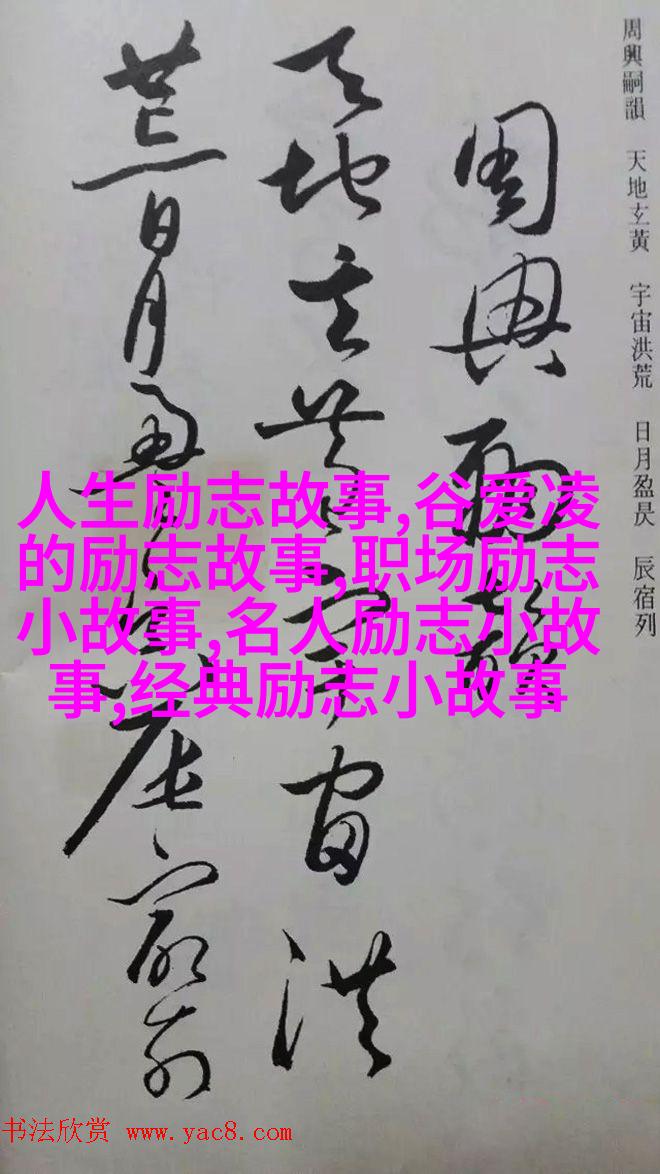 周興嗣韻 天地玄黃 宇宙洪荒 日月盈昃 辰宿列
周興嗣韻
天地玄黃宇宙洪
荒日月盈昃辰宿列
人生励志故事,谷爱凌
的励志故事,职场励志
小故事,名人励志小故
事,经典励志小故事
书法欣赏 www.yac8.com